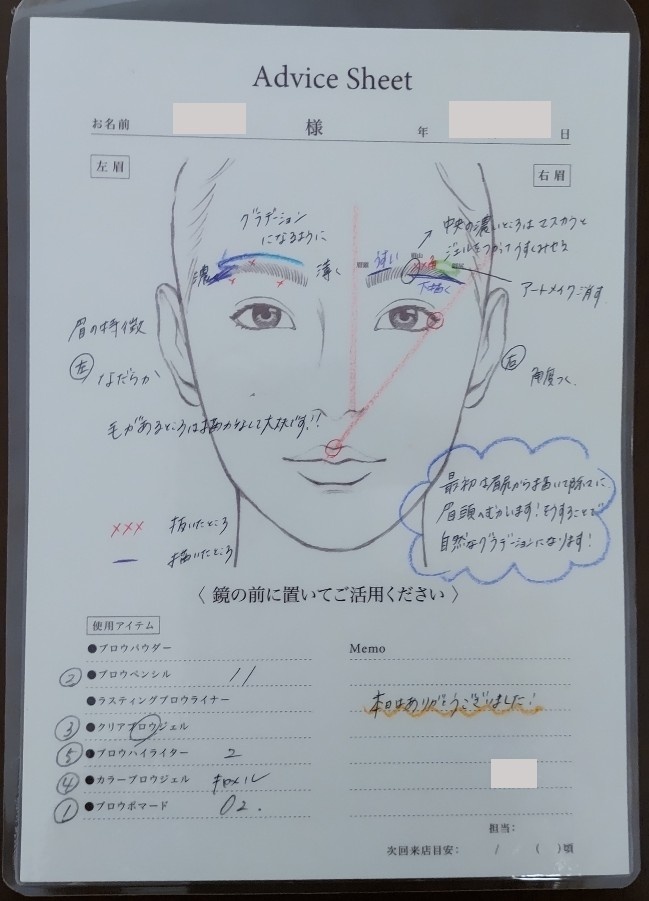 Advice Sheet
お名前 様 年 日
左眉
右眉
グラデーション
になるように
濃
薄く
薄い
中央の濃いところはマスカラと
ジェルをつかってうすくみせる
下描く
アートメイク消す
眉の特徴
左 なだらか
右 角度つく
毛があるところは描かなくて大丈夫です!!
最初は眉尻から描いて除々に
眉頭へむかいます!そうすることで
自然なグラデーションになります!
××× 抜いたところ
描いたところ
〈 鏡の前に置いてご活用ください 〉
使用アイテム
●ブロウパウダー
② ●ブロウペンシル 11
●ラスティングブロウライナー
③ ●クリアブロウジェル
⑤ ●ブロウハイライター 2
④ ●カラーブロウジェル キャメル
① ●ブロウポマード 02.
Memo
本日はありがとうございました!
担当:
次回来店目安: / ( )頃